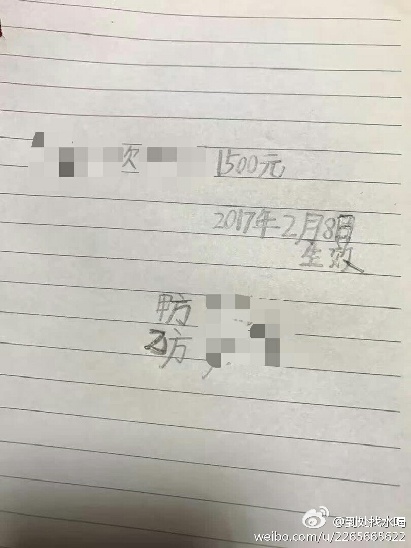 次 1500元
2017年2月8日
生效
甲方
乙方
@到处找水喝
weibo.com/u/2265665622